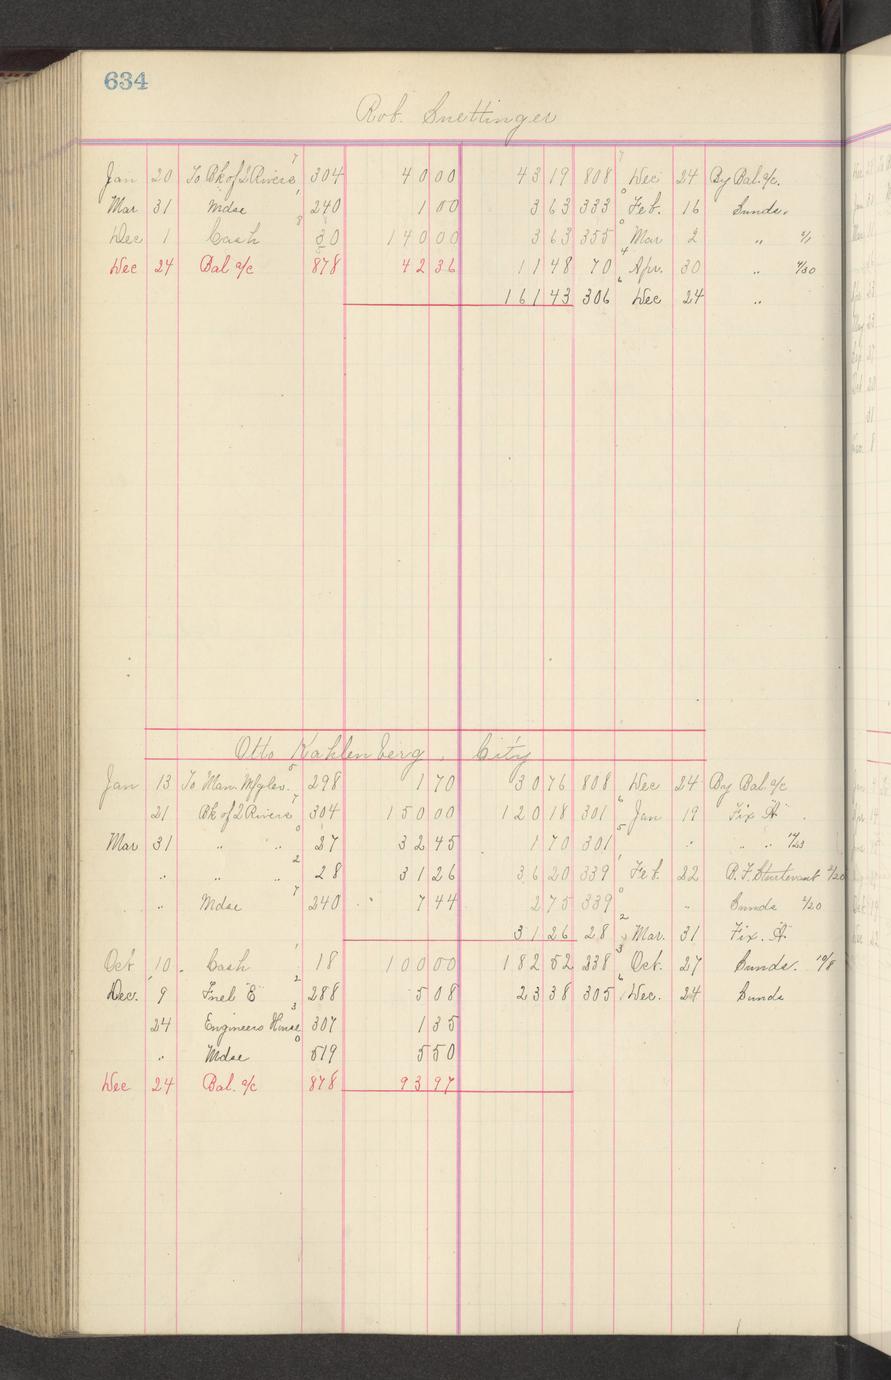 634
Rob. Snettinger
Jan 20 To Bk of 2 Rivers 7 304 40 00 43 19 808 7 Dec 24 By Bal. a/c.
Mar 31 Mdse 1 240 1 00 3 63 333 0 Feb. 16 Sunds.
Dec 1 Cash 8 30 140 00 3 63 355 0 Mar 2 „
Dec 24 Bal a/c 878 42 36 11 48 70 4 Apr. 30 „ 4/30
161 43 306 6 Dec 24 „
Otto Kahlenberg, City
Jan 13 To Man. Mfg 5 298 1 70 30 76 808 Dec 24 By Bal a/c
21 Bk of 2 Rivers 7 304 150 00 120 18 301 6 Jan 19 Fix A
Mar 31 „ „ 0 27 32 45 1 70 301 5 „ „ „
„ „ „ 2 28 31 26 36 20 339 1 Feb. 22 B. F. Sturtevant 2/20
„ Mdse 7 240 7 44 2 75 339 0 „ Sunds 2/20
31 26 28 2 Mar. 31 Fix. A.
Oct 10 Cash 1 18 100 00 182 52 238 3 Oct. 27 Sunds. 10/8
Dec. 9 Fuel E 2 288 5 08 23 38 305 6 Dec. 24 Sunds
24 Engineers House 3 307 1 35
„ Mdse 0 519 5 50
Dec 24 Bal. a/c 878 93 97